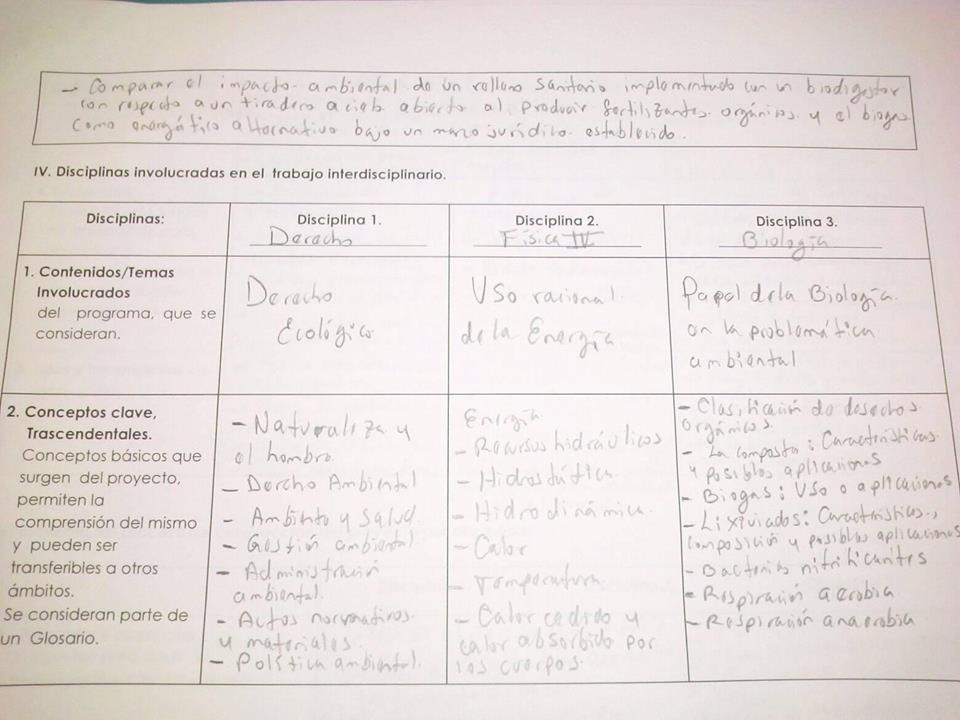 - Comparar el impacto ambiental de un relleno sanitario implementado con un biodigestor
con respecto a un tiradero a cielo abierto al producir fertilizantes orgánicos y el biogas
como energético alternativo bajo un marco jurídico establecido.
IV. Disciplinas involucradas en el trabajo interdisciplinario.
Disciplinas:
Disciplina 1.
Derecho
Disciplina 2.
Física IV
Disciplina 3.
Biología
1. Contenidos/Temas
Involucrados
del programa, que se
consideran.
Derecho
Ecológico
Uso racional
de la Energía
Papel de la Biología
en la problemática
ambiental
2. Conceptos clave,
Trascendentales.
Conceptos básicos que
surgen del proyecto,
permiten la
comprensión del mismo
y pueden ser
transferibles a otros
ámbitos.
Se consideran parte de
un Glosario.
- Naturaleza y
el hombre.
- Dercho Ambiental
- Ambiente y Salud.
- Gestión ambiental
- Administración
ambiental.
- Actos normativos
y materiales.
- Política ambiental.
Energía.
- Recursos hidráulicos
- Hidrostática.
- Hidrodinámica.
- Calor
- Temperatura
- Calor cedido y
calor absorbido por
los cuerpos.
- Clasificación de desechos
orgánicos.
- La composta: Características
y posibles aplicaciones
- Biogas: Uso o aplicaciones
- Lixiviados: Características,
composición y posibles aplicaciones
- Bacterias nitrificantes
- Respiración aerobia
- Respiración anaerobia